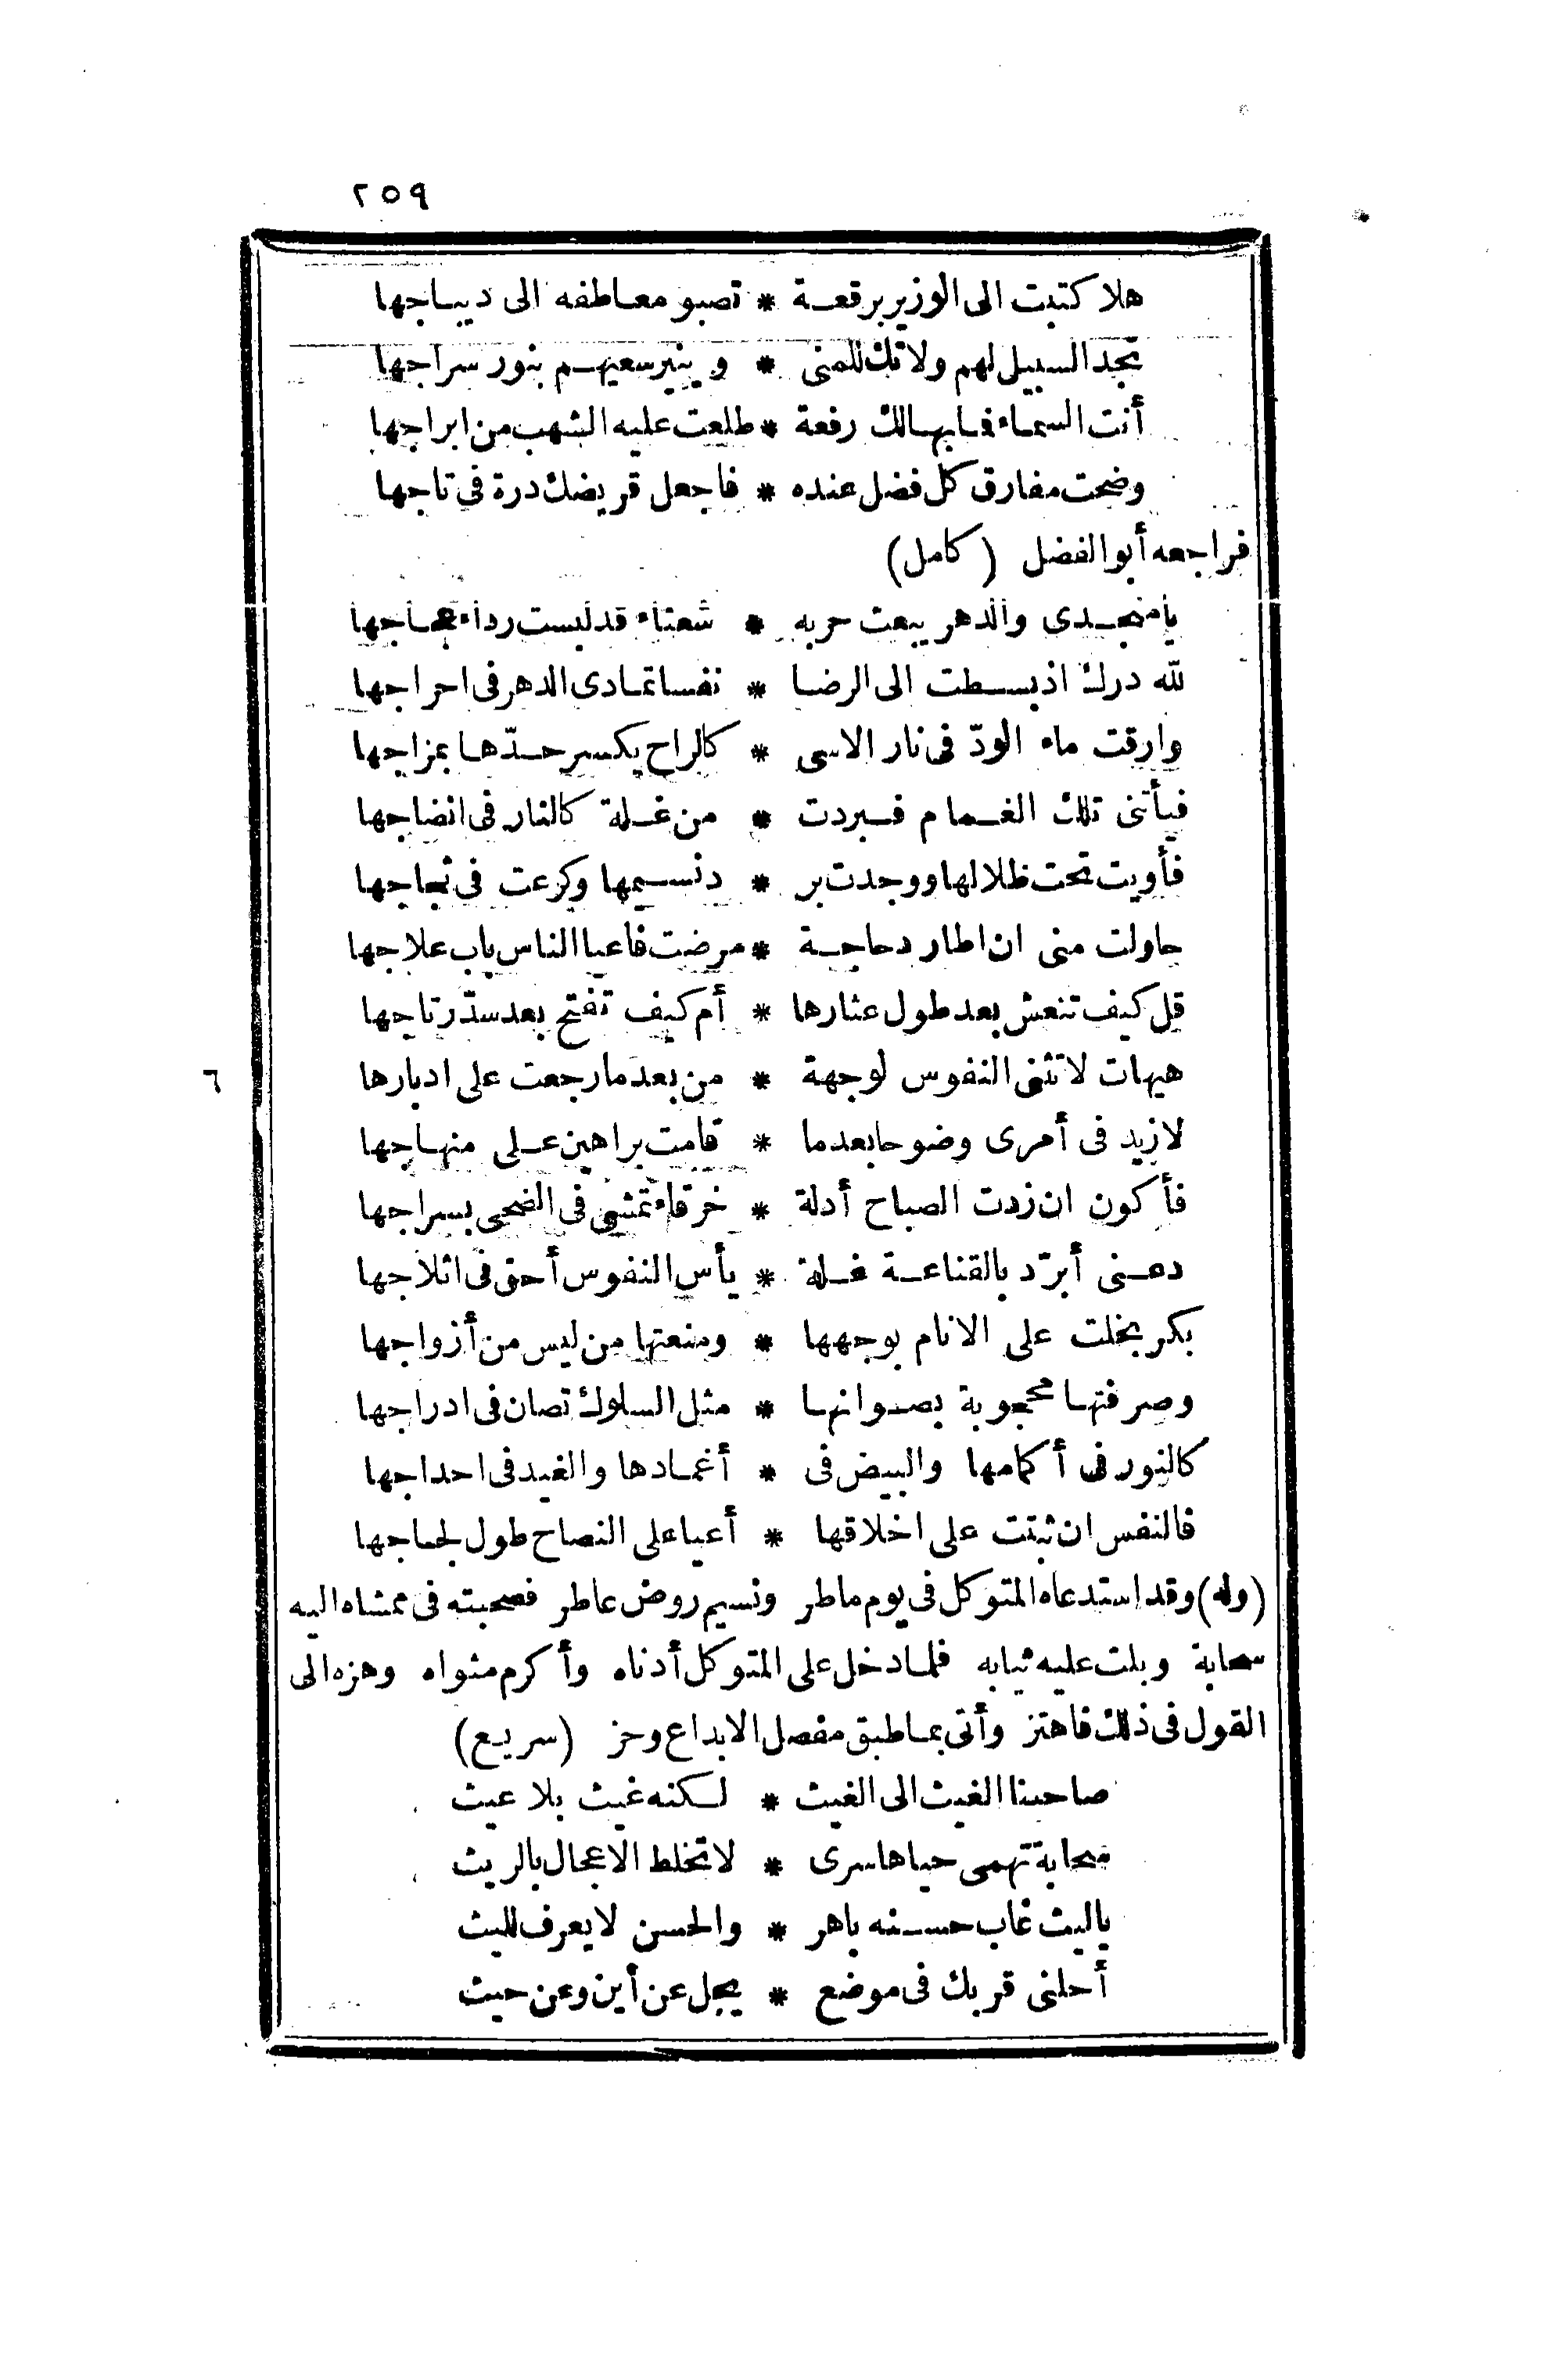 ٢٥٩
هلا كتبت الى الوزير برقعة * تصبو معاطفه الى ديباجها
تجد السبيل لهم ولاتك للمنى * وينير سعيهم بنور سراجها
أنت السماء فابهالك رفعة * طلعت عليه الشهب من ابراجها
وضحت مفارق كل فضل عنده * فاجعل قريضك درة في تاجها
فراجعه أبو الفضل (كامل)
يا منجدى والدهر يبعث حربه * شعثاء قد لبست رداء عجاجها
لله درك اذ بسطت الى الرضا * نفسا تمادى الدهر فى احراجها
وارقت ماء الودّ فى نار الاسى * كالراح يكسر حدّها بمزاجها
فيأتنى تلك الغمام فبردت * من غلة كالنار فى انضاجها
فأويت تحت ظلالها ووجدت بر * د نسيمها وكرعت فى ثجاجها
حاولت منى ان اطارد حاجة * مرضت فاعيا الناس باب علاجها
قل كيف تنعش بعد طول عثارها * أم كيف تفتح بعد سدّ رتاجها
هيهات لا تثنى النفوس لوجهة * من بعد ما رجعت على ادبارها
٦
لازيد فى أمرى وضوحا بعدما * قامت براهين على منهاجها
فأكون ان زدت الصباح أدلة * خرقاء تمشى فى الضحى بسراجها
دعنى أبرّد بالقناعة غلة * يأس النفوس أحق فى اثلاجها
بكر بخلت على الانام بوجهها * ومنعتها من ليس من أزواجها
وصرفتها محجوبة بصوانها * مثل السلوك تصان فى ادراجها
كالنور فى أكمامها والبيض فى * أغمادها والغيد فى احداجها
فالنفس ان ثبتت على اخلاقها * أعيا على النصاح طول لجاجها
(وله) وقد استدعاه المتوكل فى يوم ماطر ونسيم روض عاطر فصحبته فى ممشاه اليه
سحابة وبلت عليه ثيابه فلما دخل على المتوكل أدناه وأكرم مثواه وهزه الى
القول فى ذلك فاهتز وأتى بما طبق مفصل الابداع وحز (سريع)
صاحبنا الغيث الى الغيث * لكنه غيث بلا عيث
سحابة تهمى حياها سرى * لا تخلط الاعجال بالريث
يا ليث غاب حسنه باهر * والحسن لا يعرف لليث
أحلنى قربك فى موضع * يجل عن أين وعن حيث